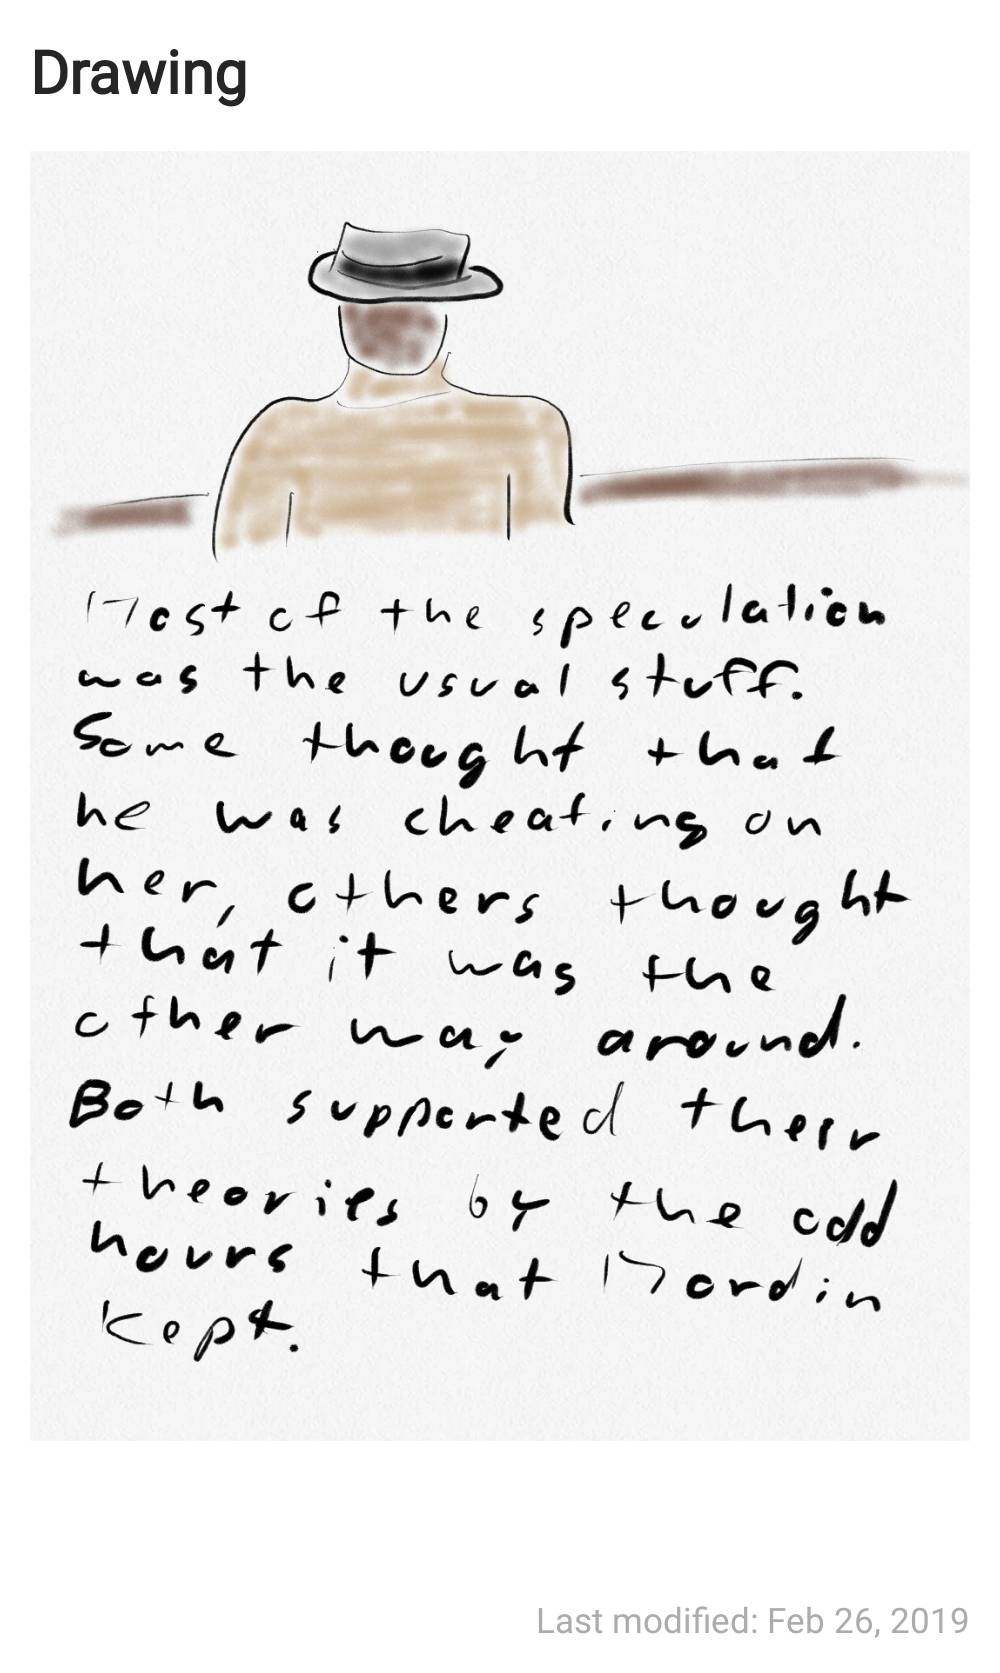 Drawing
Most of the speculation
was the usual stuff.
Some thought that
he was cheating on
her, others thought
that it was the
other way around.
Both supported their
theories by the odd
hours that Mordin
kept.
Last modified: Feb 26, 2019